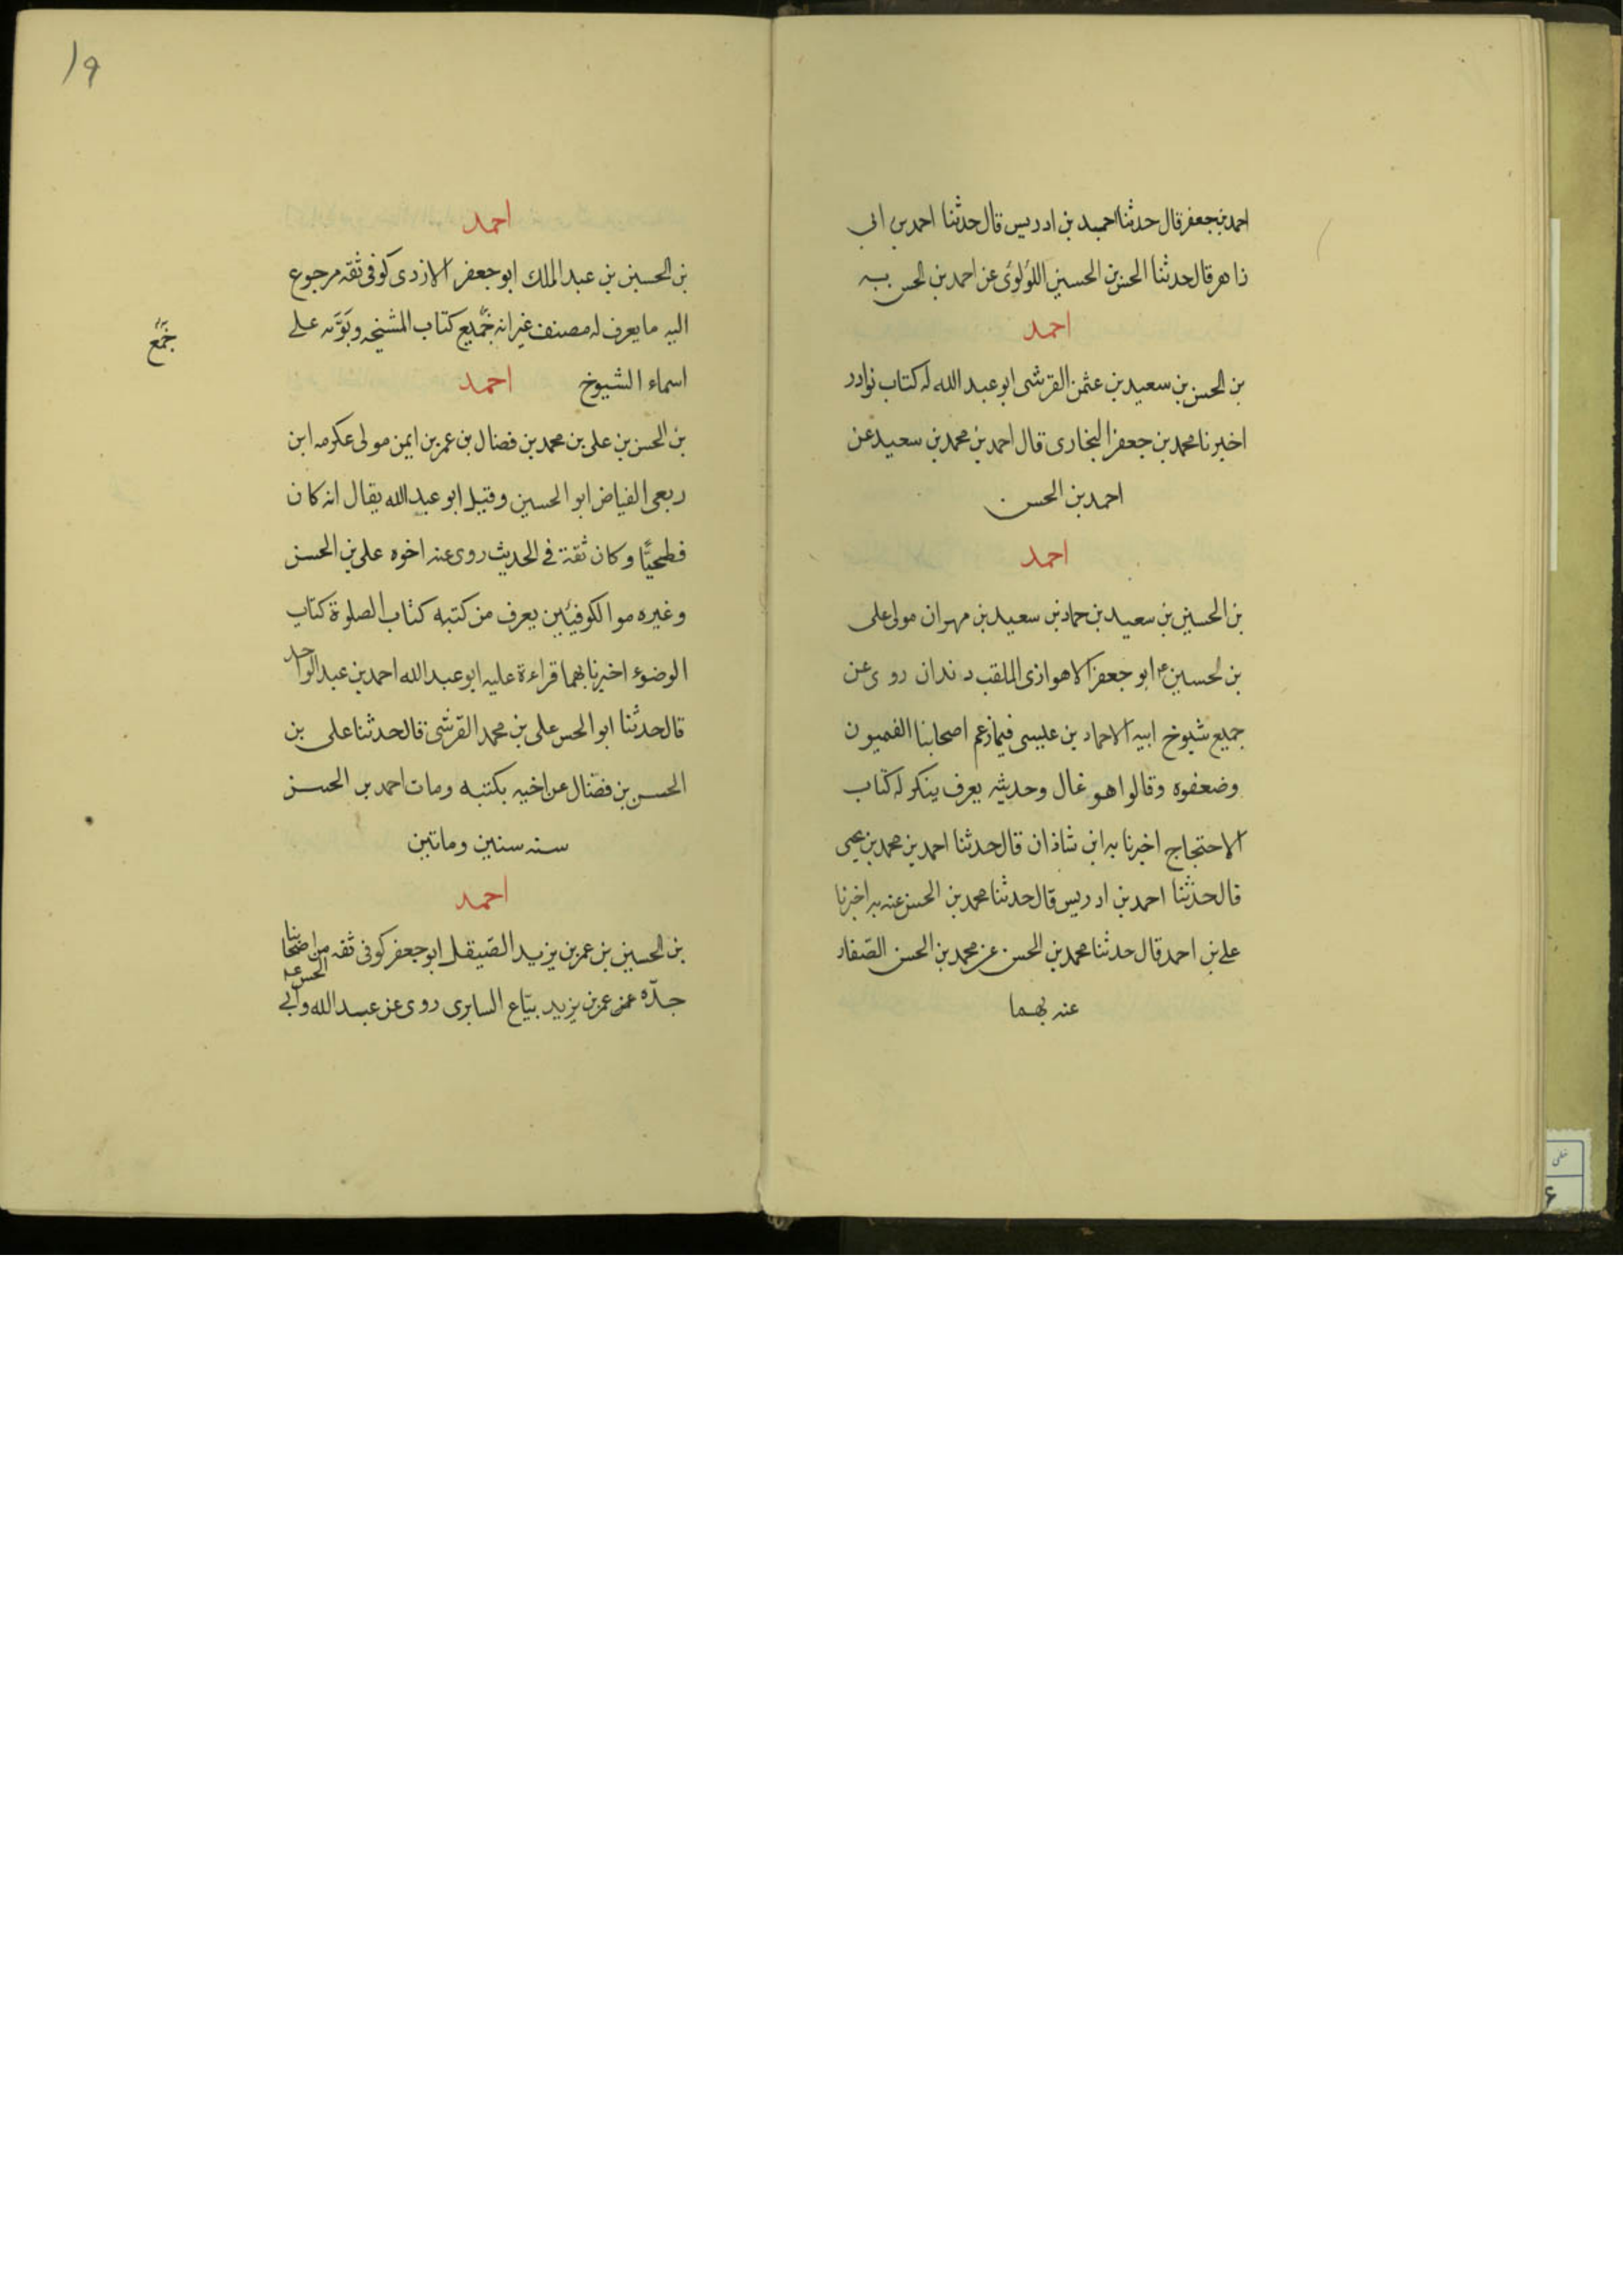 احمد بن جعفر قال حدثنا احميد بن ادريس قال حدثنا احمد بن ابى
زاهر قال حدثنا الحسن بن الحسين اللؤلؤى عن احمد بن الحسن به
احمد
بن الحسن بن سعيد بن عثمن القرشى ابو عبد الله له كتاب نوادر
اخبرنا محمد بن جعفر البخارى قال احمد بن محمد بن سعيد عن
احمد بن الحسن
احمد
بن الحسين بن سعيد بن حماد بن سعيد بن مهران مولى على
بن لحسين ع ابو جعفر الاهوازى الملقب دندان روى عن
جميع شيوخ ابيه الاحماد بن عليسى فيما زعم اصحابنا القميون
وضعفوه وقالوا هو غال وحديثه يعرف ينكر له كتاب
الاحتجاج اخبرنا به ابن شاذان قال حدثنا احمد بن محمد بن يحيى
قال حدثنا احمد بن ادريس قال حدثنا محمد بن الحسن عنه به اخبرنا
على بن احمد قال حدثنا محمد بن الحسن عن محمد بن الحسن الصفار
عنه بهما
١٩
احمد
بن الحسين بن عبد الملك ابو جعفر الازدى كوفى ثقه مرجوع
اليه ما يعرف له مصنف غير انه جميع كتاب المشيخه وبوبه على
جمع
اسماء الشيوخ احمد
بن الحسن بن على بن محمد بن فضال بن عمر بن ايمن مولى عكرمه ابن
ربعى الفياض ابو الحسين وقيل ابو عبد الله يقال انه كان
فطحيًا وكان ثقة فى الحديث روى عنه اخوه على بن الحسن
وغيره مو الكوفيين يعرف من كتبه كتاب الصلوة كتاب
الوضوء اخبرنا بهما قراءة عليه ابو عبد الله احمد بن عبد الواحد
قال حدثنا ابو الحسن على بن محمد القرشى قال حدثنا على بن
الحسن بن فضال عن اخيه بكتبه ومات احمد بن الحسن
سنه ستين وماتين
احمد
بن الحسين بن عمر بن يزيد الصيقل ابو جعفر كوفى ثقه من اصحابنا
جدّه عمر بن يزيد بيّاع السابرى روى عن عبد الله وابى الحسن ع